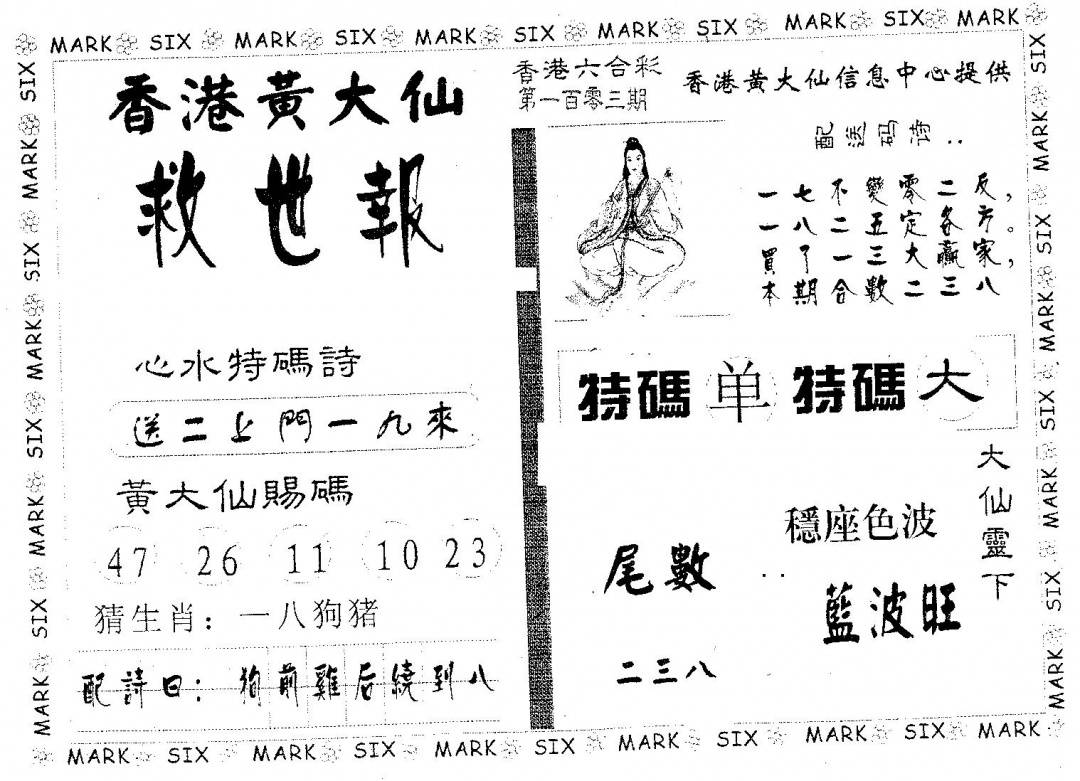 MARK SIX MARK SIX MARK SIX MARK SIX MARK SIX MARK
香港黃大仙
救世報
心水特碼詩
送二上門一九來
黃大仙賜碼
47 26 11 10 23
猜生肖：一八狗猪
配詩曰：狗前雞后繞到八
香港六合彩
第一百零三期
香港黃大仙信息中心提供
配送码诗：
一七不變零二反，
一八二五定各方。
買了一三大贏家，
本期合數二三八
特碼单 特碼大
大仙靈下
穩座色波
藍波旺
尾數：
二三八
SIX MARK SIX MARK SIX MARK SIX MARK
SIX MARK SIX MARK SIX MARK SIX MARK
MARK SIX MARK SIX MARK SIX MARK SIX MARK SIX MARK